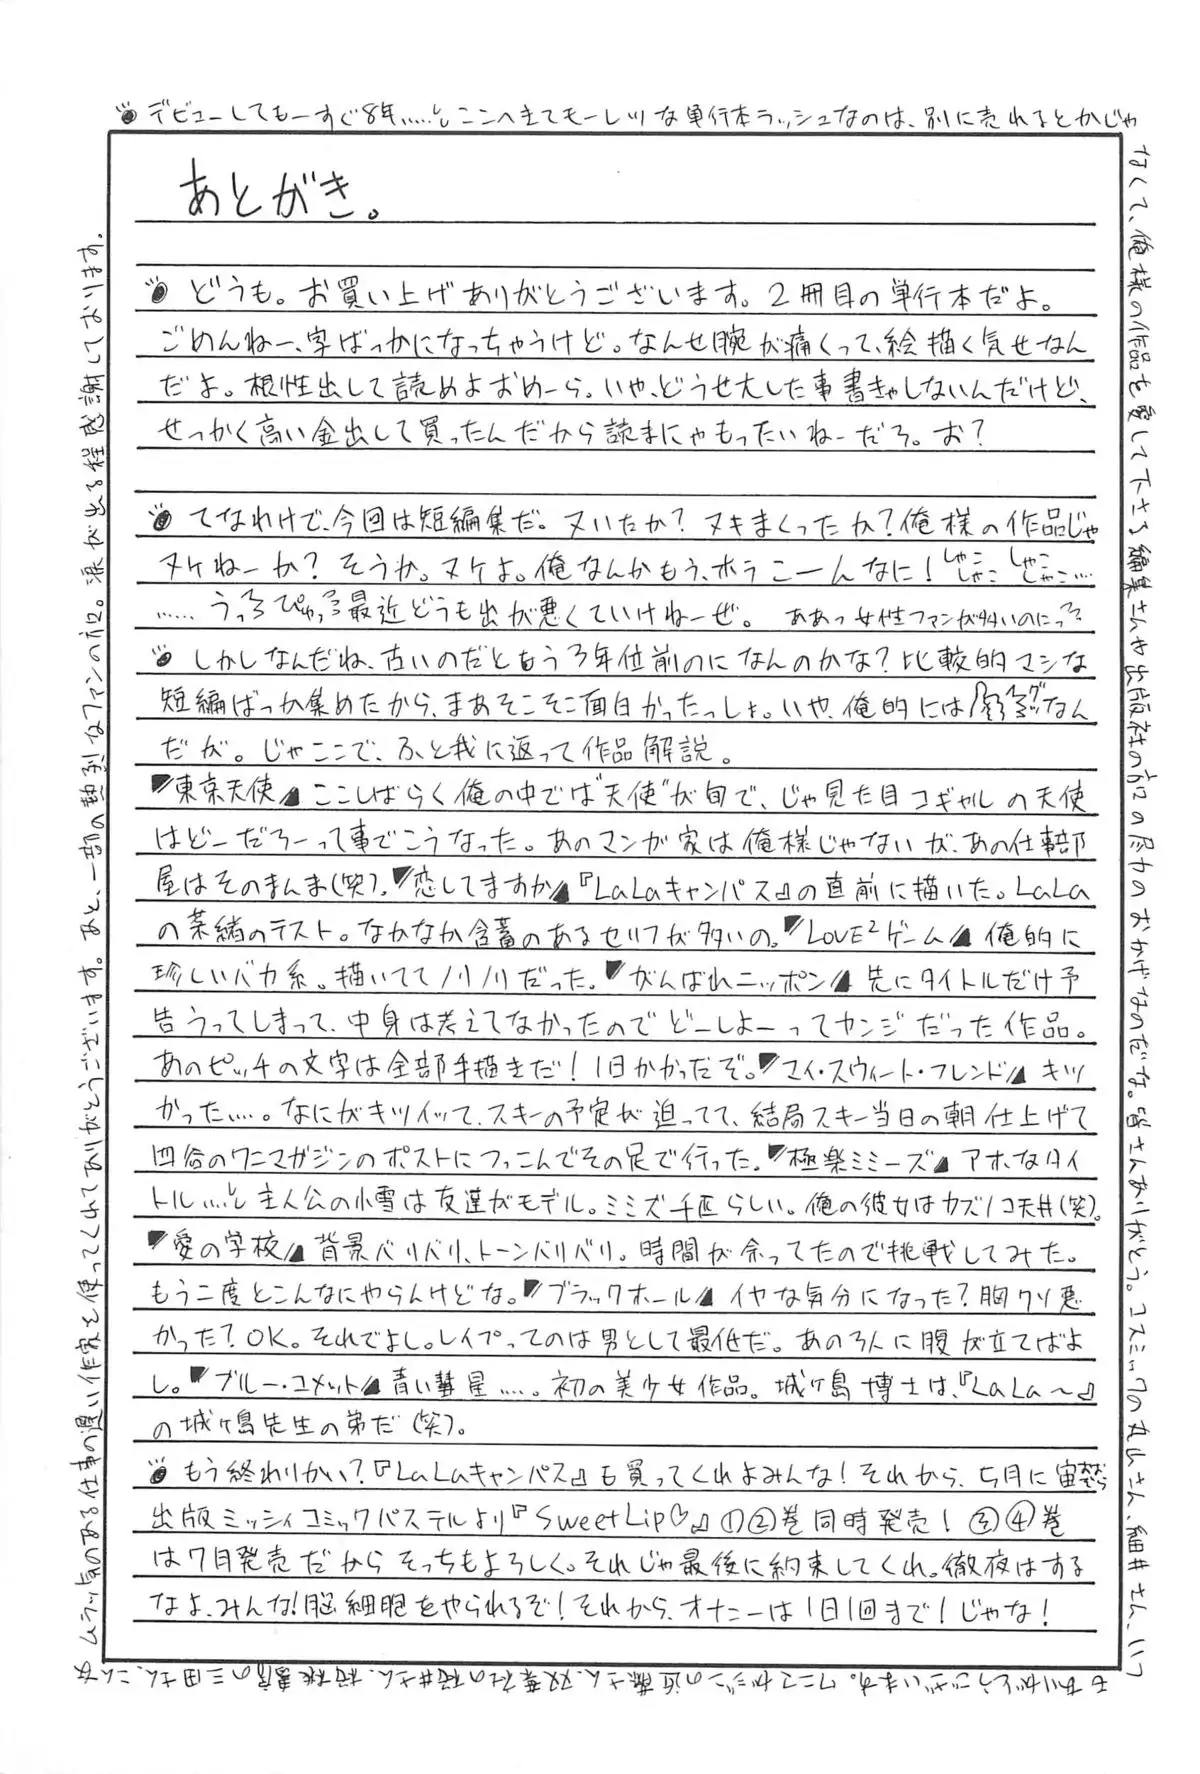 デビューしてもーすぐ8年……。ここへきてモーレツな単行本ラッシュなのは、別に売れるとかじゃ
なくて、俺様の作品を愛して下さる編集さんや出版社の方々の尽力のおかげなのだな。皆さんありがとう。コスミックの丸山さん、細井さん、いつ
もありがとうございます。ワニマガジンの近藤さん、双葉社の桜井さん、桜桃書房の三田さん、こんな
ムラッ気のある仕事の遅い作家を使ってくれてありがとうございます。あと、一部の熱烈なファンの方。涙が出る程感謝しております。
あとがき。
どうも。お買い上げありがとうございます。2冊目の単行本だよ。
ごめんねー、字ばっかになっちゃうけど。なんせ腕が痛くって、絵描く気せなん
だよ。根性出して読めよおめーら。いや、どうせ大した事書きゃしないんだけど、
せっかく高い金出して買ったんだから読まにゃもったいねーだろ。お?
てなわけで、今回は短編集だ。ヌいたか?ヌキまくったか?俺様の作品じゃ
ヌケねーか?そうか。ヌケよ。俺なんかもう、ホラこーんなに!しゃこしゃこしゃこしゃこ…
……うっぴゅっ最近どうも出が悪くていけねーぜ。ああっ女性ファンが多いのにっ
しかしなんだね、古いのだともう3年位前のになんのかな?比較的マシな
短編ばっか集めたから、まあそこそこ面白かったっしょ。いや、俺的にはなん
だが。じゃここで、ふと我に返って作品解説。
『東京天使』ここしばらく俺の中では"天使"が旬で、じゃ見た目コギャルの天使
はどーだろーって事でこうなった。あのマンガ家は俺様じゃないが、あの仕事部
屋はそのまんま(笑)。『恋してますか』『LaLaキャンパス』の直前に描いた。LaLa
のテスト。なかなか含蓄のあるセリフが多いの。『LOVE²ゲーム』俺的に
珍しいバカ系。描いててノリノリだった。『がんばれニッポン』先にタイトルだけ予
告うってしまって、中身は考えてなかったのでどーしよーってカンジだった作品。
あのピッチの文字は全部手描きだ!1日かかっだぞ。『マイ・スウィート・フレンド』キツ
かった……。なにがキツイって、スキーの予定が迫ってて、結局スキー当日の朝仕上げて
四谷のワニマガジンのポストにつっこんでその足で行った。『極楽ミミーズ』アホなタイ
トル……。主人公の小雪は友達がモデル。ミミズ千匹らしい。俺の彼女はカズノコ天井(笑)。
『愛の学校』背景バリバリ、トーンバリバリ。時間が余ってたので挑戦してみた。
もう二度とこんなにやらんけどな。『ブラックホール』イヤな気分になった?胸クソ悪
かった?OK。それでよし。レイプってのは男として最低だ。あの3人に腹が立てばよ
し。『ブルー・コメット』青い彗星……。初の美少女作品。城ヶ島博士は、『LaLa〜』
の城ヶ島先生の弟だ(笑)。
もう終わりかい?『LaLaキャンパス』も買ってくれよみんな!それから、5月に宙
出版ミッシィコミックパステルより『Sweet Lip♡』の①②巻同時発売!③④巻
は7月発売だからそっちもよろしく。それじゃ最後に約束してくれ。徹夜はする
なよ、みんな!脳細胞をやられるぞ!それから、オナニーは1日1回まで!じゃな!